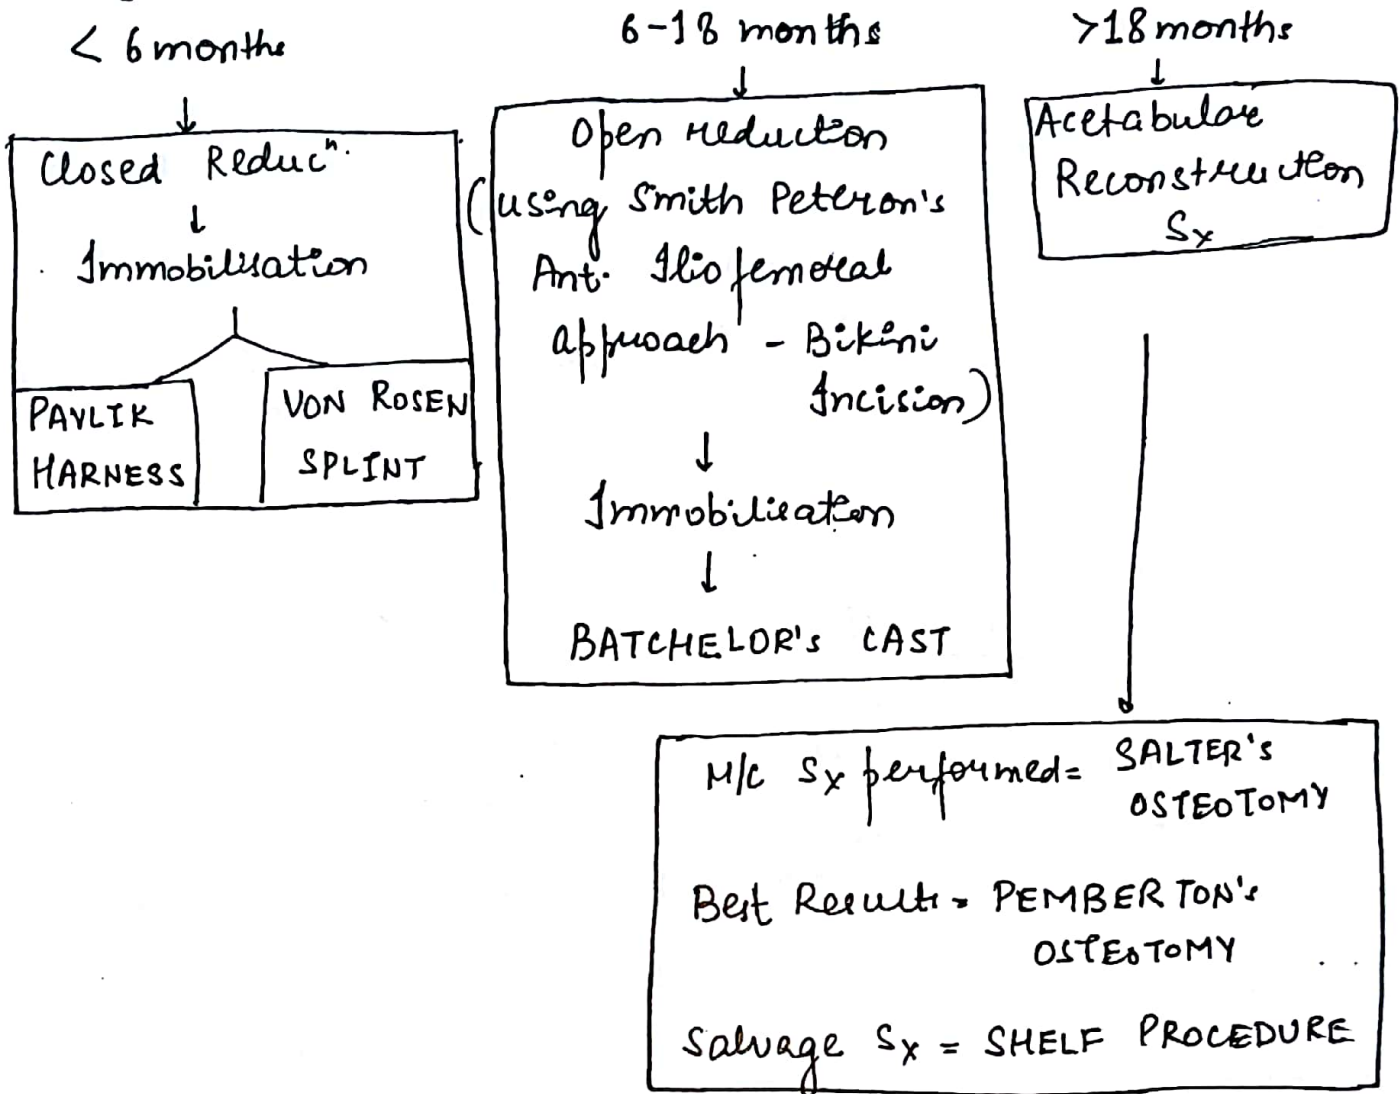 < 6 months
Closed Reducⁿ.
↓
Immobilisation
PAVLIK
HARNESS
VON ROSEN
SPLINT
6-18 months
↓
Open reduction
(using Smith Peteron's
Ant. Iliofemoral
approach - Bikini
Incision)
↓
Immobilisation
↓
BATCHELOR's CAST
>18 months
↓
Acetabular
Reconstruction
Sx
M/C Sx performed = SALTER's
OSTEOTOMY
Best Results = PEMBERTON's
OSTEOTOMY
Salvage Sx = SHELF PROCEDURE